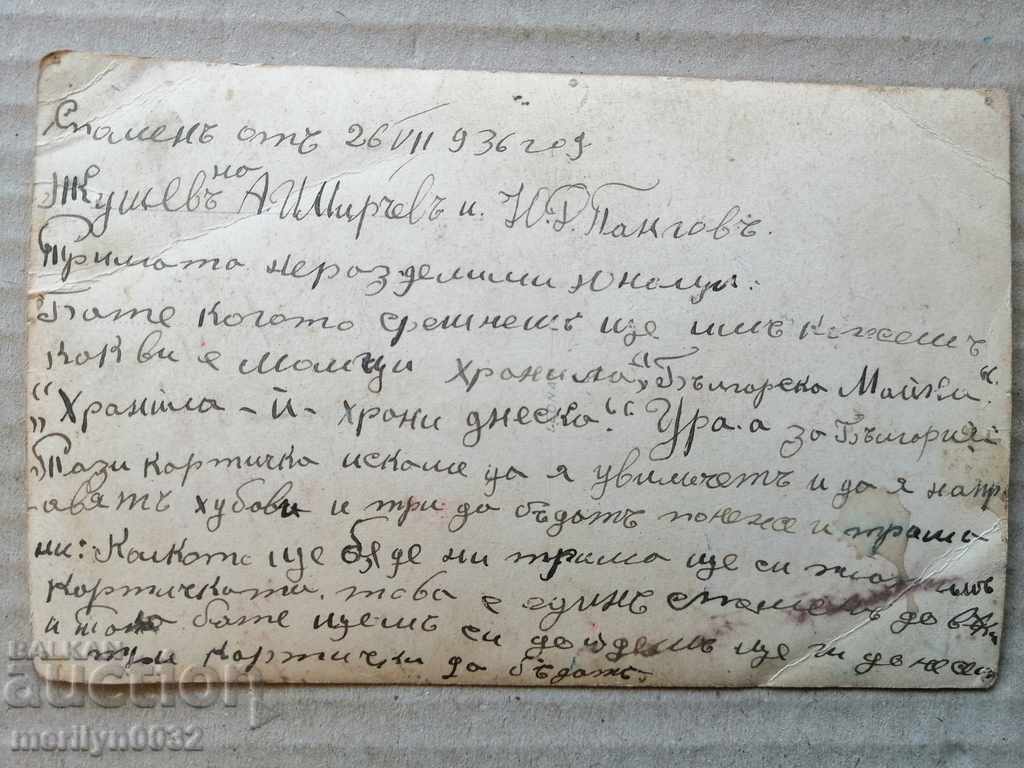 Спомень отъ 26 VII 936 год
Жушевъ на А. И Мирчевъ и. Н. Р. Панговъ.
Тримата неразделими юнаци.
Бате когато срешнешъ ще имъ кажешъ
как ви е момци хранила „Българска Майка“.
„Хранила - й - храни днеска“. Ура.а за България
Тази картичка искаме да я увиличетъ и да я напр
авятъ хубави и три да бъдатъ понеже и трама
ни: Колкото ще бъде ни трама ще си
картичката. това е единъ споменъ до
и бате щемъ си дойдемъ ще ги донеси
три картички да бъдатъ.
BALKAN
auction
merilyn0032